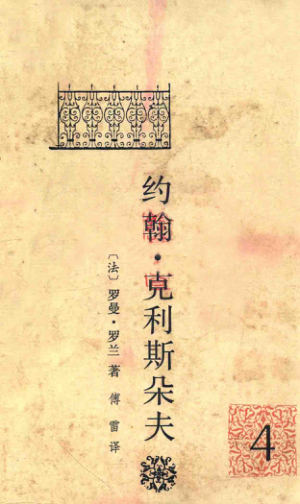 约翰·克利斯朵夫
〔法〕罗曼·罗兰著
傅雷译
4